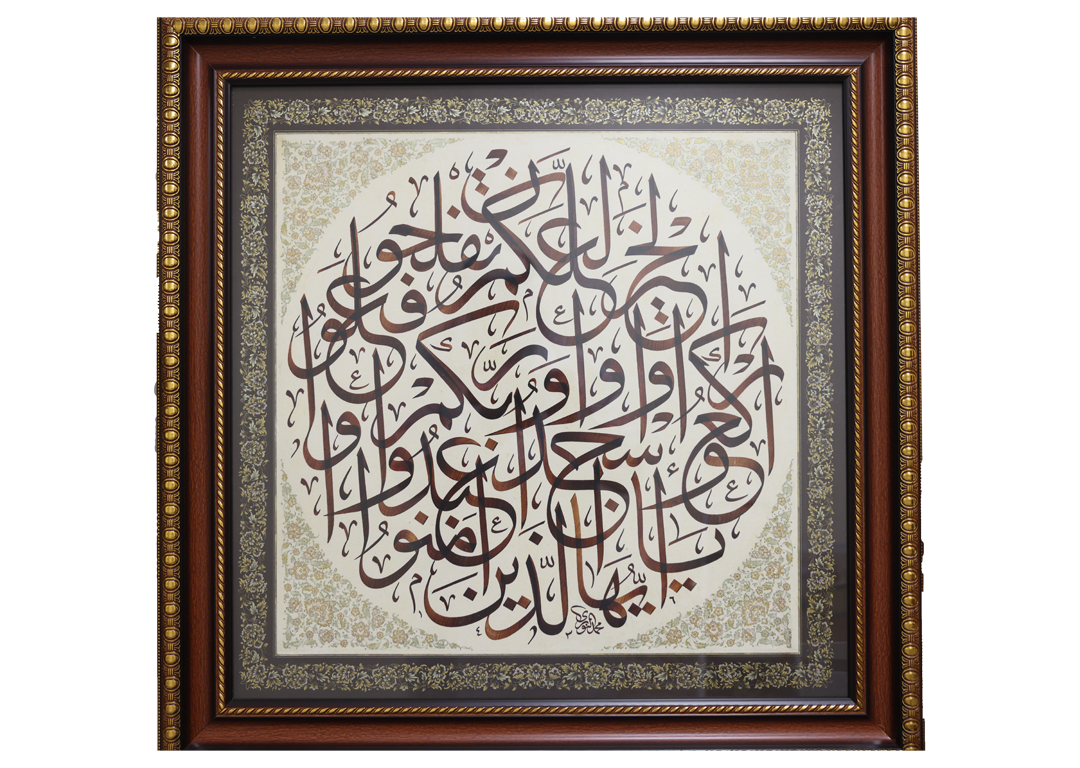 يا ايها الذين امنوا اركعوا واسجدوا واعبدوا ربكم وافعلوا الخير لعلكم تفلحون